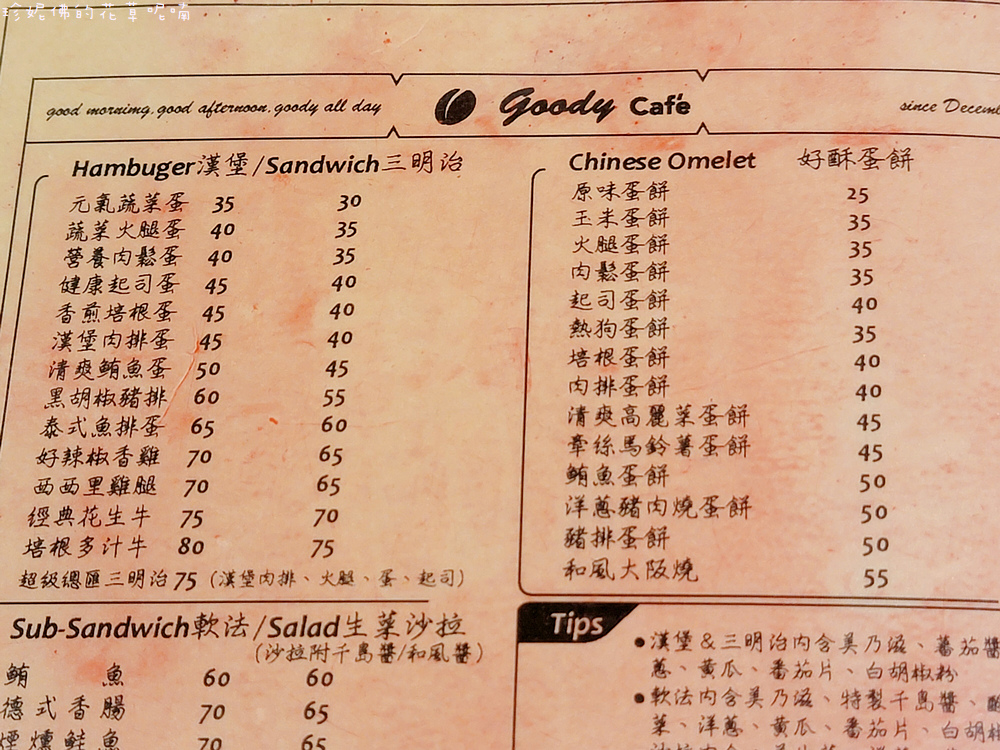 珍妮佛的花草呢喃
good mornimg.good afternoon.goody all day
Goody Café
since Decem
Hambuger漢堡/Sandwich三明治
元氣蔬菜蛋 35 30
蔬菜火腿蛋 40 35
營養肉鬆蛋 40 35
健康起司蛋 45 40
香煎培根蛋 45 40
漢堡肉排蛋 45 40
清爽鮪魚蛋 50 45
黑胡椒豬排 60 55
泰式魚排蛋 65 60
好辣椒香雞 70 65
西西里雞腿 70 65
經典花生牛 75 70
培根多汁牛 80 75
超級總匯三明治 75 (漢堡肉排、火腿、蛋、起司)
Chinese Omelet 好酥蛋餅
原味蛋餅 25
玉米蛋餅 35
火腿蛋餅 35
肉鬆蛋餅 35
起司蛋餅 40
熱狗蛋餅 35
培根蛋餅 40
肉排蛋餅 40
清爽高麗菜蛋餅 45
韋絲馬鈴薯蛋餅 45
鮪魚蛋餅 50
洋蔥豬肉燒蛋餅 50
豬排蛋餅 50
和風大阪燒 55
Sub-Sandwich軟法/Salad生菜沙拉
(沙拉附千島醬/和風醬)
鮪魚 60 60
德式香腸 70 65
煙燻鮭魚 70 65
Tips
●漢堡&三明治內含美乃滋、蕃茄醬
蔥、黃瓜、番茄片、白胡椒粉
●軟法內含美乃滋、特製千島醬、
菜、洋蔥、黃瓜、番茄片、白胡椒